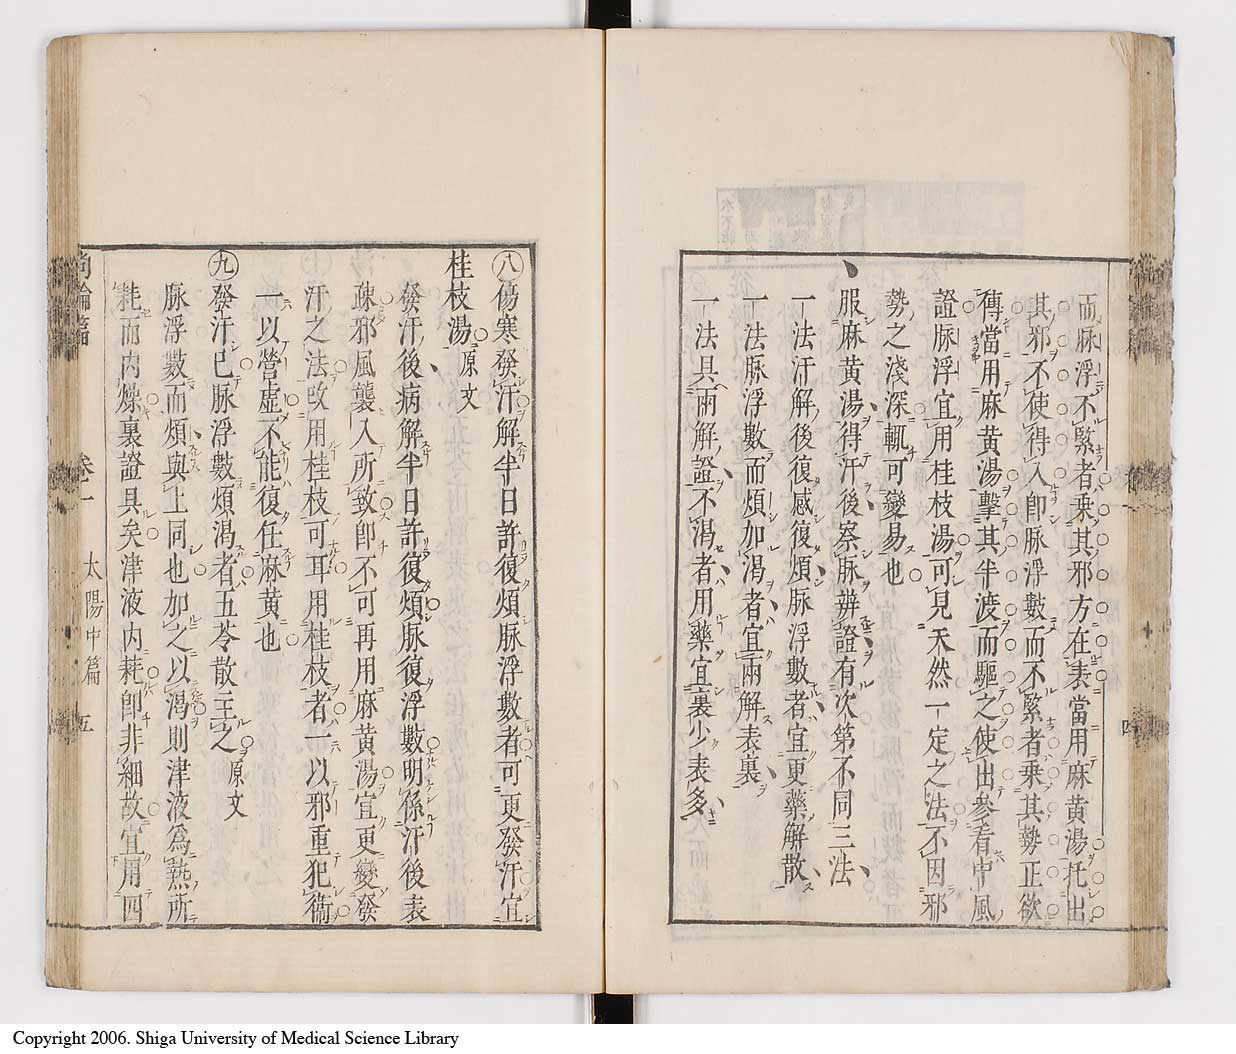 而脉浮不緊者乘其邪方在表當用麻黄湯托出
其邪不使得入卽脉浮數而不緊者乘其勢正欲
傳當用麻黄湯擊其半渡而驅之使出參看中風
證脉浮宜用桂枝湯可見天然一定之法不因邪
勢之淺深輒可變易也
服麻黄湯得汗後察脉辨證有次第不同三法
一法汗解後復感復煩脉浮數者宜更藥解散
一法脉浮數而煩加渴者宜兩解表裏
一法具兩解證不渴者用藥宜裏少表多
四
㊇傷寒發汗解半日許復煩脉浮數者可更發汗宜
桂枝湯原文
發汗後病解半日許復煩脉復浮數明係汗後表
疎邪風襲入所致卽不可再用麻黄湯宜更變發
汗之法改用桂枝可耳用桂枝者一以邪重犯衞
一以營虛不能復任麻黄也
㊈發汗已脉浮數煩渴者五苓散主之原文
脉浮數而煩與上同也加之以渴則津液爲熱所
耗而内燥裏證具矣津液内耗卽非細故宜用四
尚論篇 卷一 太陽中篇 五
Copyright 2006. Shiga University of Medical Science Library